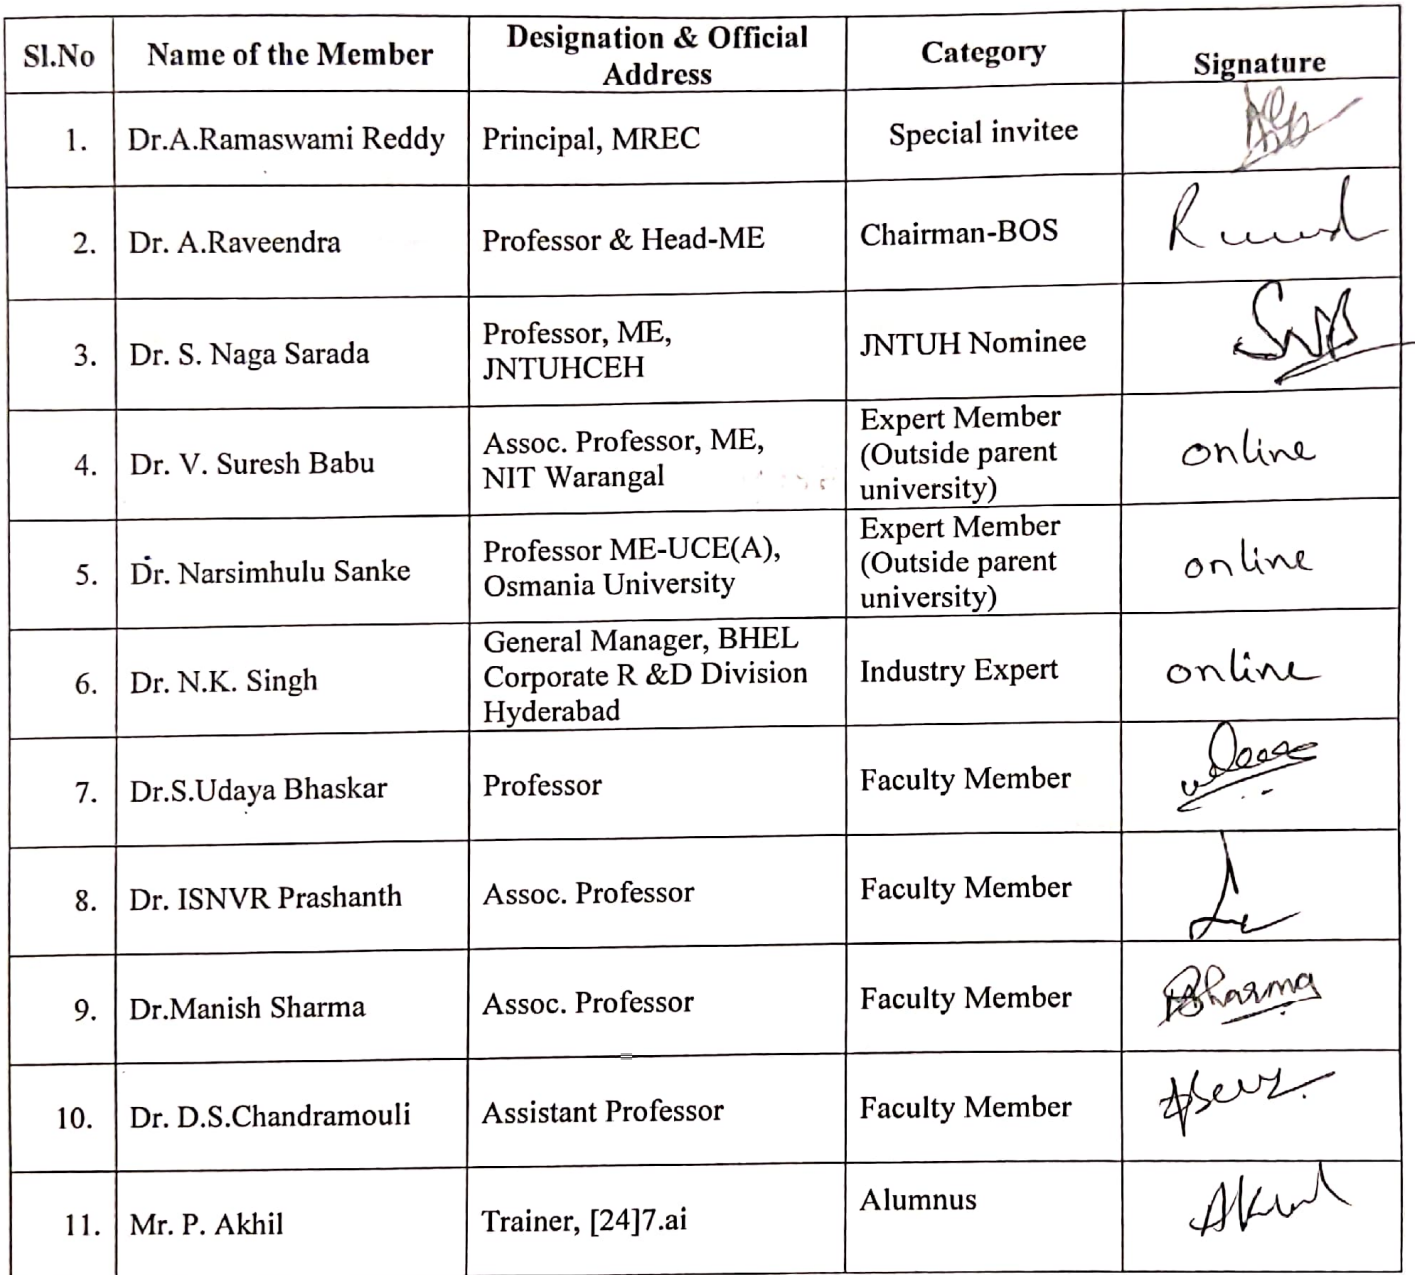 Sl.No Name of the Member Designation & Official Address Category Signature
1. Dr.A.Ramaswami Reddy Principal, MREC Special invitee
2. Dr. A.Raveendra Professor & Head-ME Chairman-BOS
3. Dr. S. Naga Sarada Professor, ME,
JNTUHCEH JNTUH Nominee
4. Dr. V. Suresh Babu Assoc. Professor, ME,
NIT Warangal Expert Member
(Outside parent
university) online
5. Dr. Narsimhulu Sanke Professor ME-UCE(A),
Osmania University Expert Member
(Outside parent
university) online
6. Dr. N.K. Singh General Manager, BHEL
Corporate R &D Division
Hyderabad Industry Expert online
7. Dr.S.Udaya Bhaskar Professor Faculty Member
8. Dr. ISNVR Prashanth Assoc. Professor Faculty Member
9. Dr.Manish Sharma Assoc. Professor Faculty Member Sharma
10. Dr. D.S.Chandramouli Assistant Professor Faculty Member
11. Mr. P. Akhil Trainer, [24]7.ai Alumnus Akhil